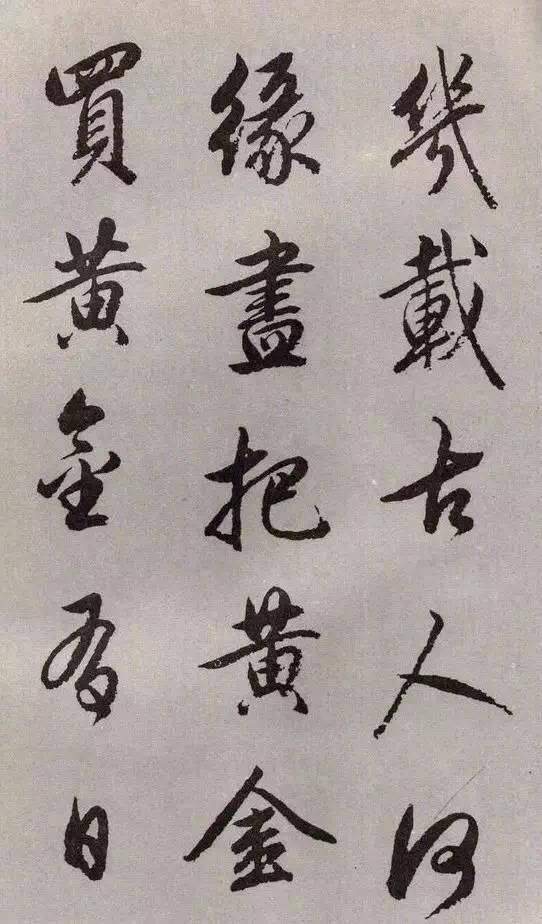 幾載古人何
緣盡把黃金
買黃金有日